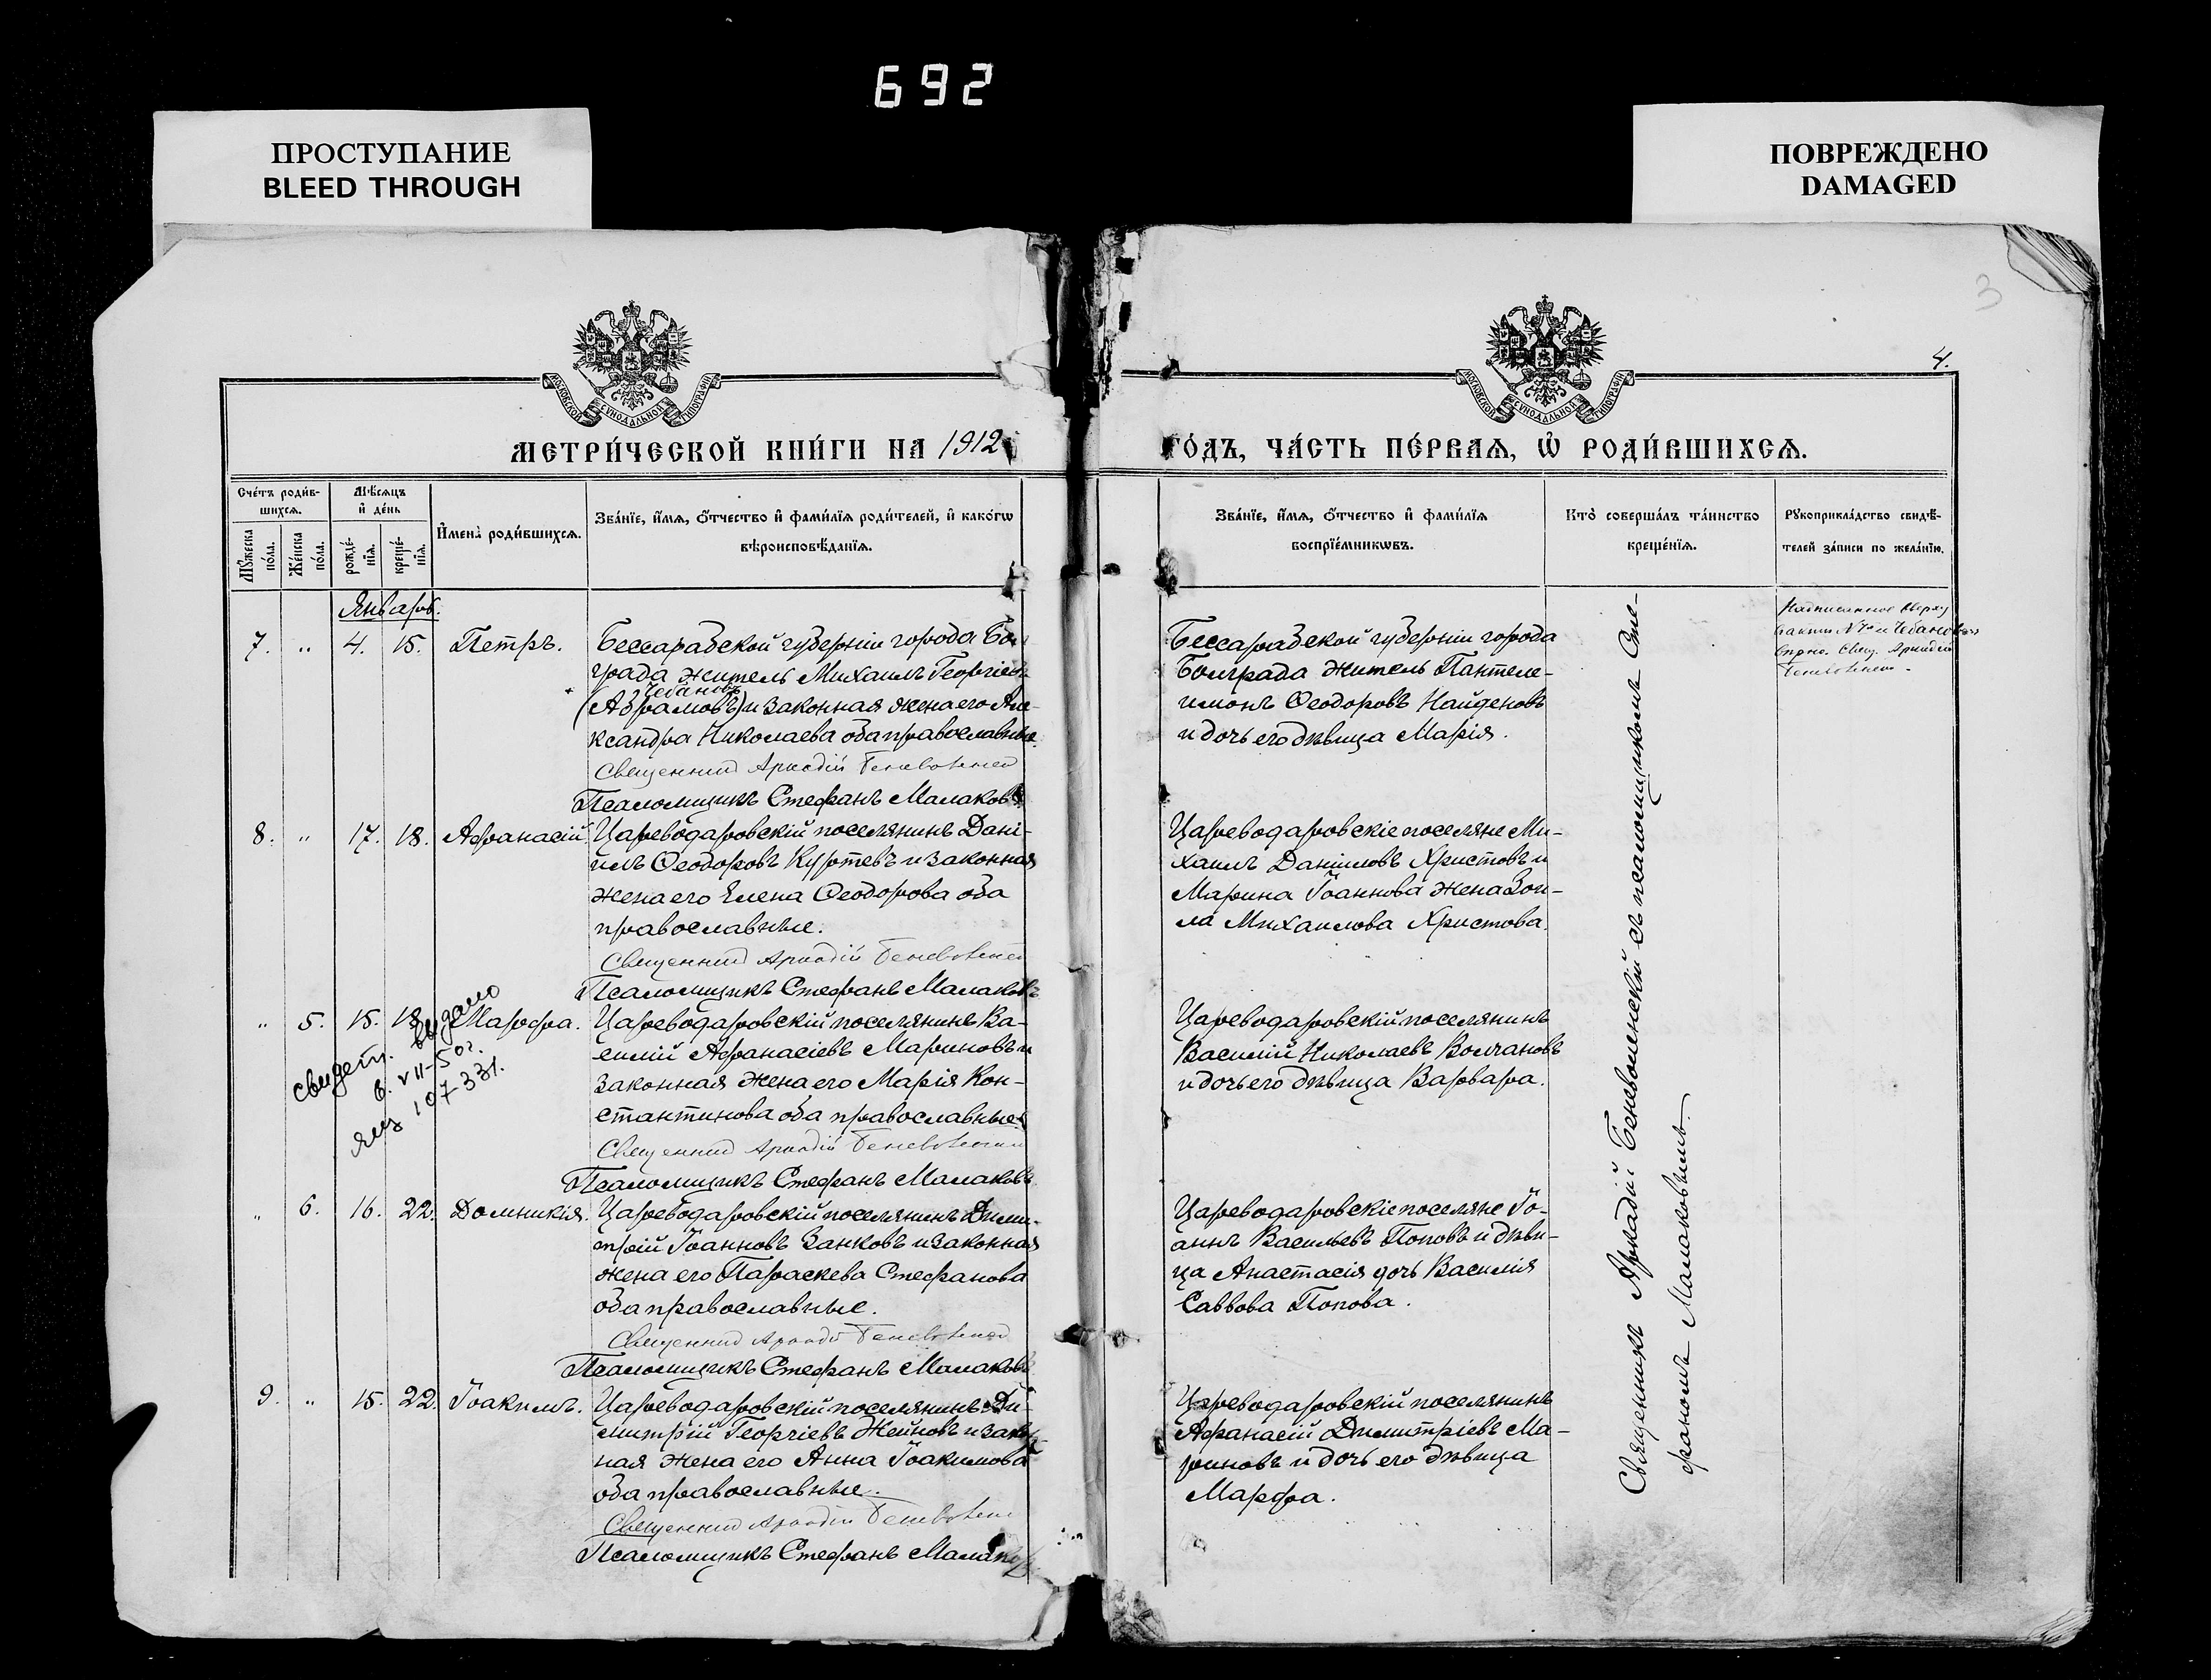 692
ПРОСТУПАНИЕ
BLEED THROUGH
ПОВРЕЖДЕНО
DAMAGED
3
4.
МОСКОВСКОЙ СѴНОДАЛЬНОЙ ТИПОГРАФІИ
МОСКОВСКОЙ СѴНОДАЛЬНОЙ ТИПОГРАФІИ
МЕТРИ́ЧЕСКОЙ КНИ́ГИ НА 1912
ГО́ДЪ, ЧА́СТЬ ПЕ́РВАѦ, Ѡ҆ РОДИ́ВШИХСѦ.
Сче́тъ роди́в-
шихсѧ.
Мѣ́сѧцъ
и҆ де́нь
Мꙋ́жеска
по́ла.
Же́нска
по́ла.
рожде́-
нїѧ.
креще́-
нїѧ.
И҆мена̀ роди́вшихсѧ.
Зва́нїе, и҆́мѧ, ѻ҆́тчество и҆ фами́лїѧ роди́телей, и҆ како́гѡ
вѣроисповѣ́данїѧ.
Зва́нїе, и҆́мѧ, ѻ҆́тчество и҆ фами́лїѧ
воспрїе́мникѡвъ.
Кто̀ соверша́лъ та́инство
креще́нїѧ.
Рꙋкоприкла́дство свидѣ́-
телей за́писи по жела́нїю.
Январь.
7. " 4. 15. Петръ.
Бессарабской губерніи города Бол
града житель Михаилъ Георгіевъ
Чебановъ
(Абрамовъ) и законная жена его Але-
ксандра Николаева оба православные.
Священникъ Аркадій Беневоленскій
Псаломщикъ Стефанъ Малаковъ
Бессарабской губерніи города
Болграда житель Пантеле-
имонъ Ѳеодоровъ Найденовъ
и дочь его дѣвица Марія.
Надписанное вверху
Чебановъ
Свящ. Аркадій
Беневоленскій
8. " 17. 18. Аѳанасій.
Цареводаровскій поселянинъ Дані-
илъ Ѳеодоровъ Куртевъ и законная
жена его Елена Ѳеодорова оба
православные.
Священникъ Аркадій Беневоленскій
Псаломщикъ Стефанъ Малаковъ
Цареводаровскіе поселяне Ми-
хаилъ Даніиловъ Христовъ и
Марина Іоаннова жена Зои-
ла Михаилова Христова.
" 5. 15. 18. Марѳа.
свидет. выдано
6. VII-50 г.
яиз 107-331.
Цареводаровскій поселянинъ Ва-
силій Аѳанасіевъ Мариновъ и
законная жена его Марія Кон-
стантинова оба православные.
Священникъ Аркадій Беневоленскій
Псаломщикъ Стефанъ Малаковъ
Цареводаровскій поселянинъ
Василій Николаевъ Волчановъ
и дочь его дѣвица Варвара.
" 6. 16. 22. Домникія.
Цареводаровскій поселянинъ Дими-
трій Іоанновъ Занковъ и законная
жена его Параскева Стефанова
оба православные.
Священникъ Аркадій Беневоленскій
Псаломщикъ Стефанъ Малаковъ
Цареводаровскіе поселяне Іо-
аннъ Васильевъ Поповъ и дѣви-
ца Анастасія дочь Василія
Саввова Попова.
9. " 15. 22. Іоакимъ.
Цареводаровскій поселянинъ Ди-
митрій Георгіевъ Жейновъ и закон-
ная жена его Анна Іоакимова
оба православные.
Священникъ Аркадій Беневоленскій
Псаломщикъ Стефанъ Малаковъ
Цареводаровскій поселянинъ
Аѳанасій Димитріевъ Ма-
риновъ и дочь его дѣвица
Марѳа.
Священникъ Аркадій Беневоленскій съ псаломщикомъ Сте-
фаномъ Малаковымъ.